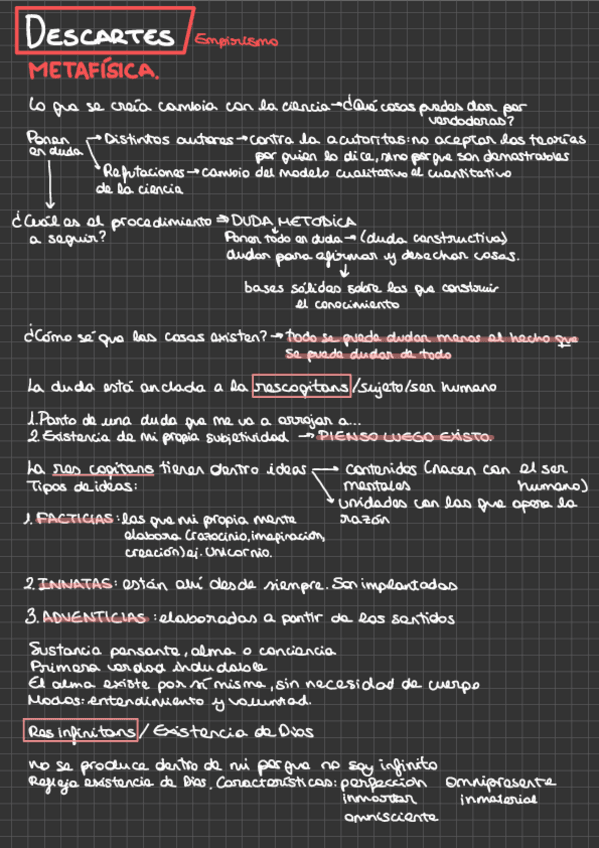 DESCARTES Empirismo
METAFÍSICA.
Lo que se creía cambia con la ciencia → ¿Qué cosas puedes dar por
verdaderas?
Ponen en duda → Distintos autores → contra la autoritas: no aceptar las teorías
por quien lo dice, sino porque son demostrables
→ Refutaciones → cambio del modelo cualitativo al cuantitativo
de la ciencia
¿Cuál es el procedimiento ⇒ DUDA METODICA
a seguir? Poner todo en duda → (duda constructiva)
dudar para afirmar y desechar cosas.
↓
bases sólidas sobre las que construir
el conocimiento
¿Cómo sé que las cosas existen? → todo se puede dudar menos el hecho que
se puede dudar de todo
La duda está anclada a la rescogitans/sujeto/ser humano
1. Parto de una duda que me va a arrojar a...
2. Existencia de mi propia subjetividad → PIENSO LUEGO EXISTO.
La res cogitans tienen dentro ideas → contenidos (nacen con el ser
Tipos de ideas: mentales humano)
→ unidades con las que opera la
razón
1. FACTICIAS: las que mi propia mente
elabora (raciocinio, imaginación,
creación) ej. Unicornio.
2. INNATAS: están ahí desde siempre. Son implantadas
3. ADVENTICIAS: elaboradas a partir de los sentidos
Sustancia pensante, alma o conciencia
Primera verdad indudable
El alma existe por sí misma, sin necesidad de cuerpo
Modos: entendimiento y voluntad.
Res infinitans / Existencia de Dios
no se produce dentro de mi porque no soy infinito
Refleja existencia de Dios. Características: perfección Omnipresente
inmortal inmaterial
omnisciente